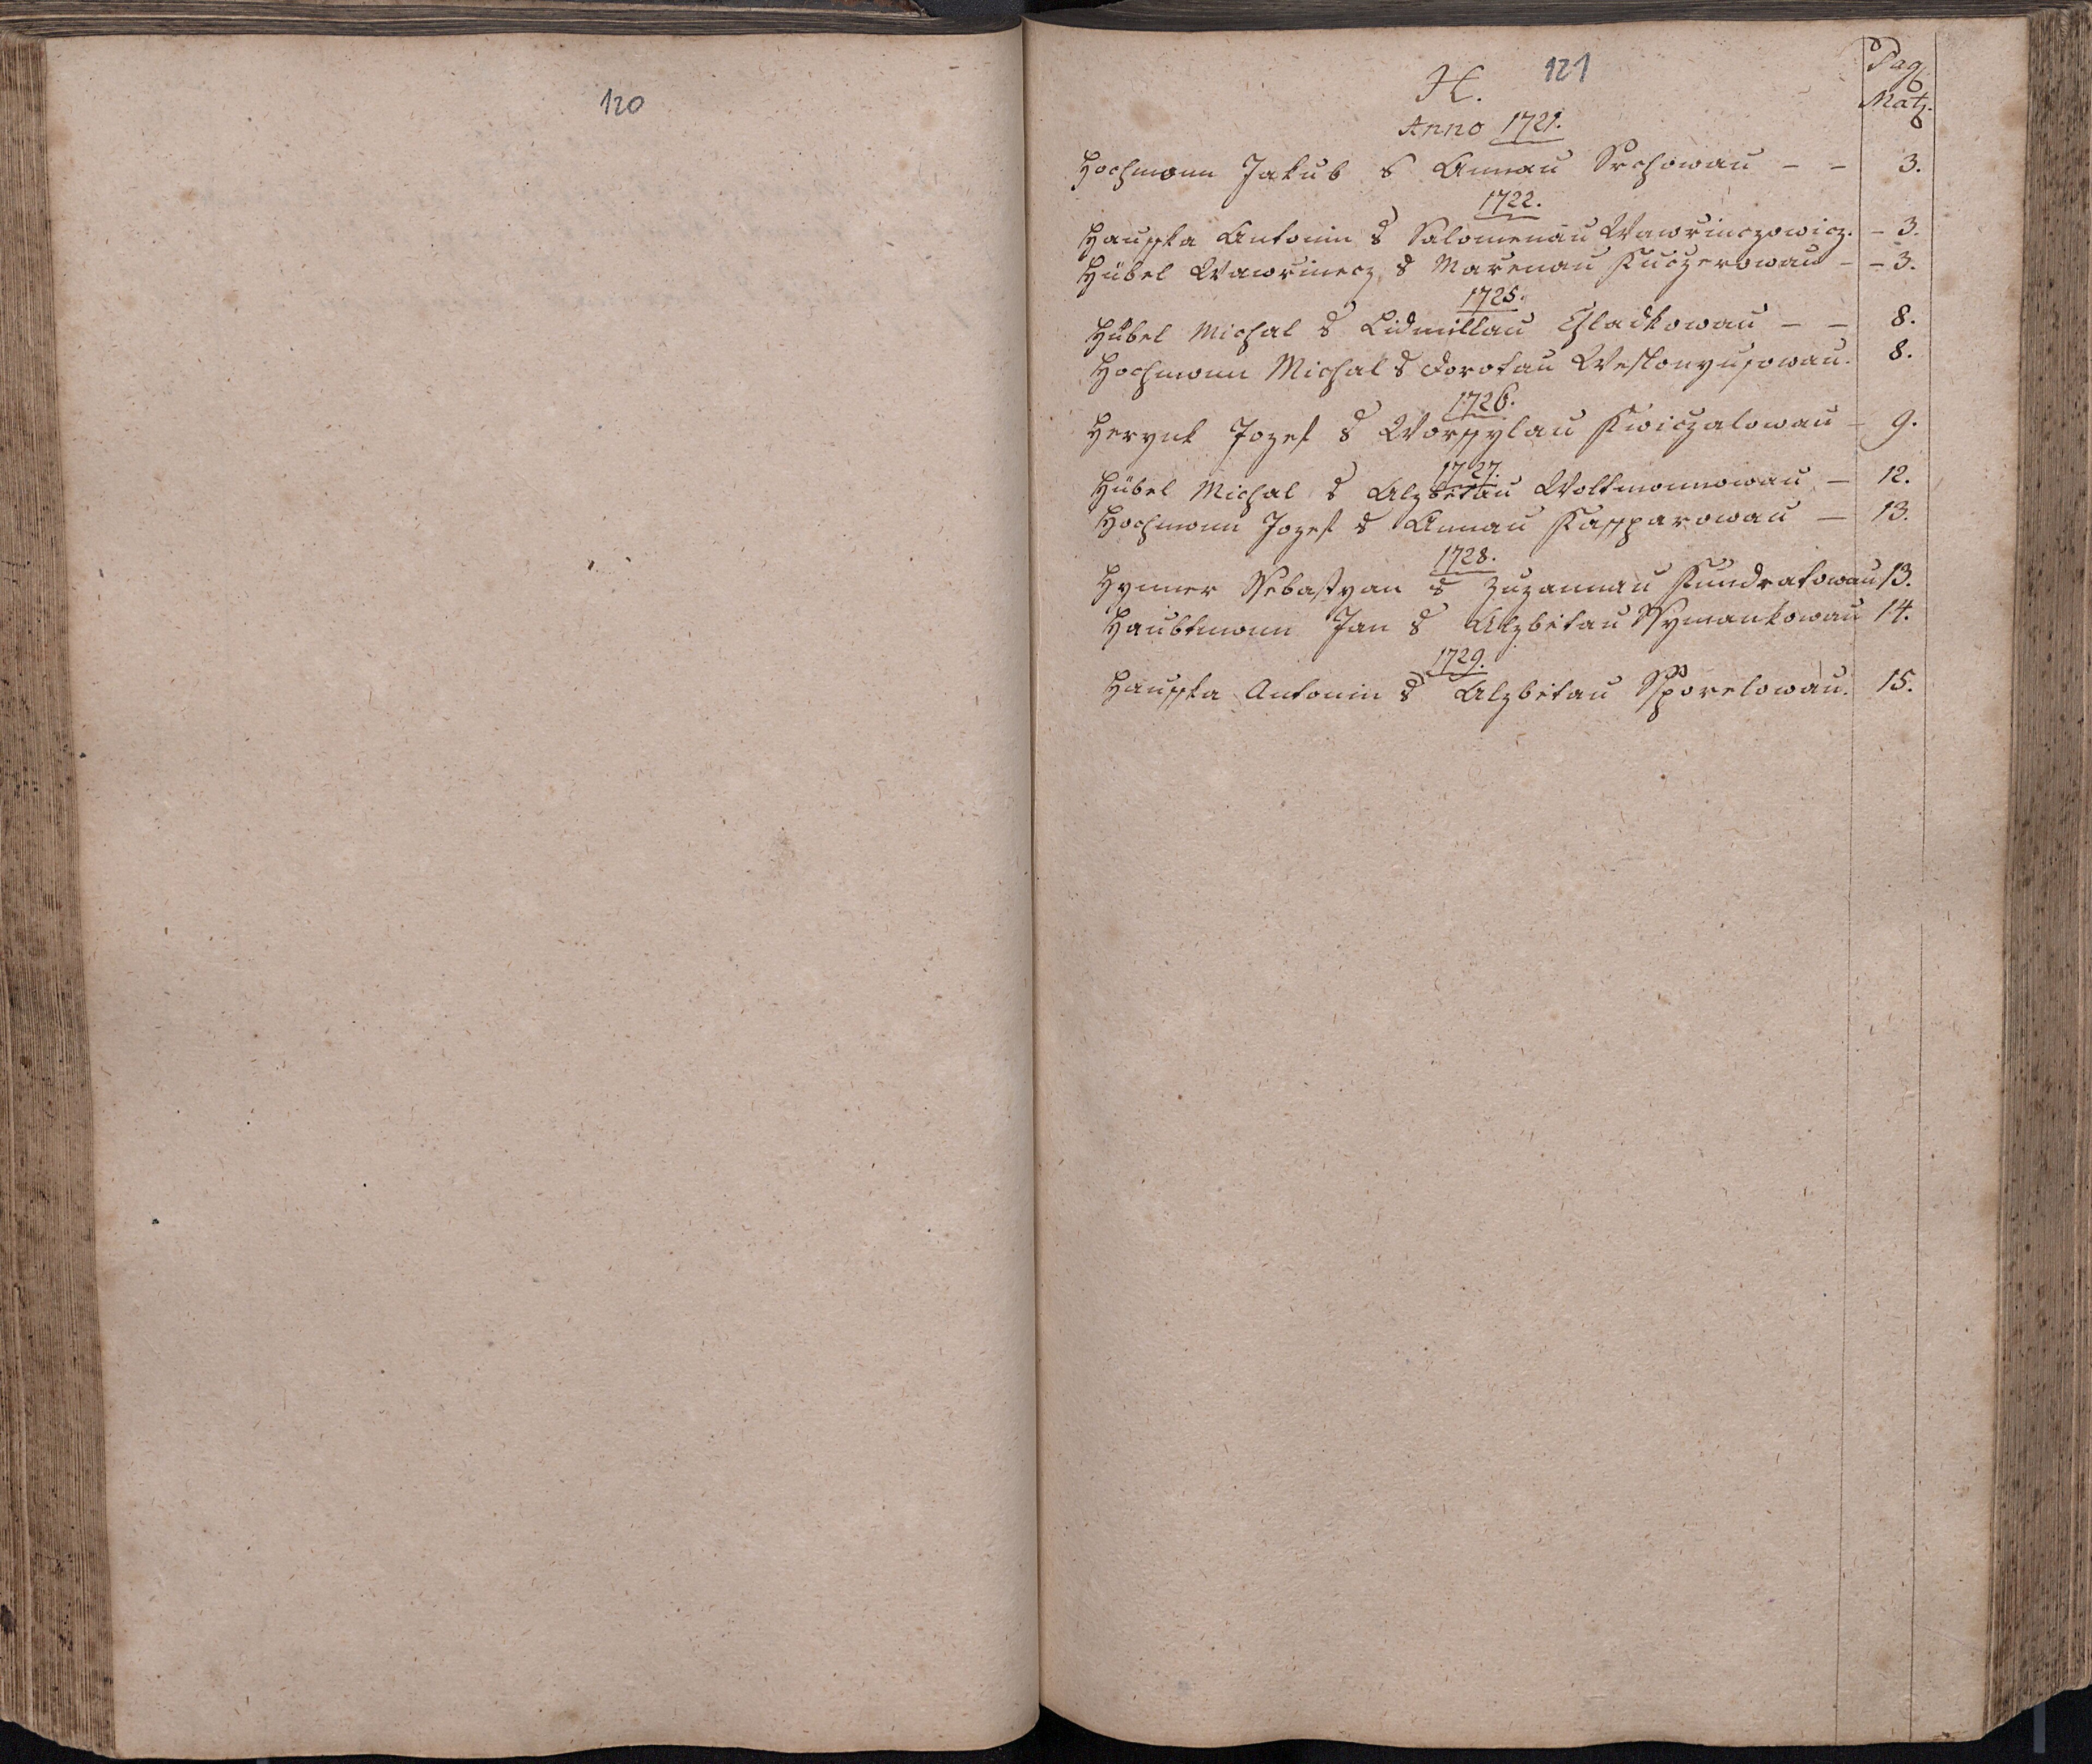 120
121
H.
Pag.
Matr.
Anno 1721.
Hochmann Jakub s Annau Srchowau - - 3.
1722.
Hauffka Antonin s Salomenau Wawřinczowicz. - 3.
Hübel Wawřinecz s Mařenau Kuczerowau - - 3.
1725.
Hübel Michal s Lidmillau Chladkowau - - 8.
Hochmann Michal s Dorotau Westonyusowau. 8.
1726.
Herynk Jozef s Worssylau Kwiczalowau - 9.
1727.
Hübel Michal s Alzbětau Woltmannowau - 12.
Hochmann Jozef s Annau Kassparowau - 13.
1728.
Hynner Ssebastyan s Zuzannau Kundratowau 13.
Haubtmann Jan s Alzbětau Ssymankowau 14.
1729.
Hauffka Antonin s Alzbětau Ssporelowau. 15.